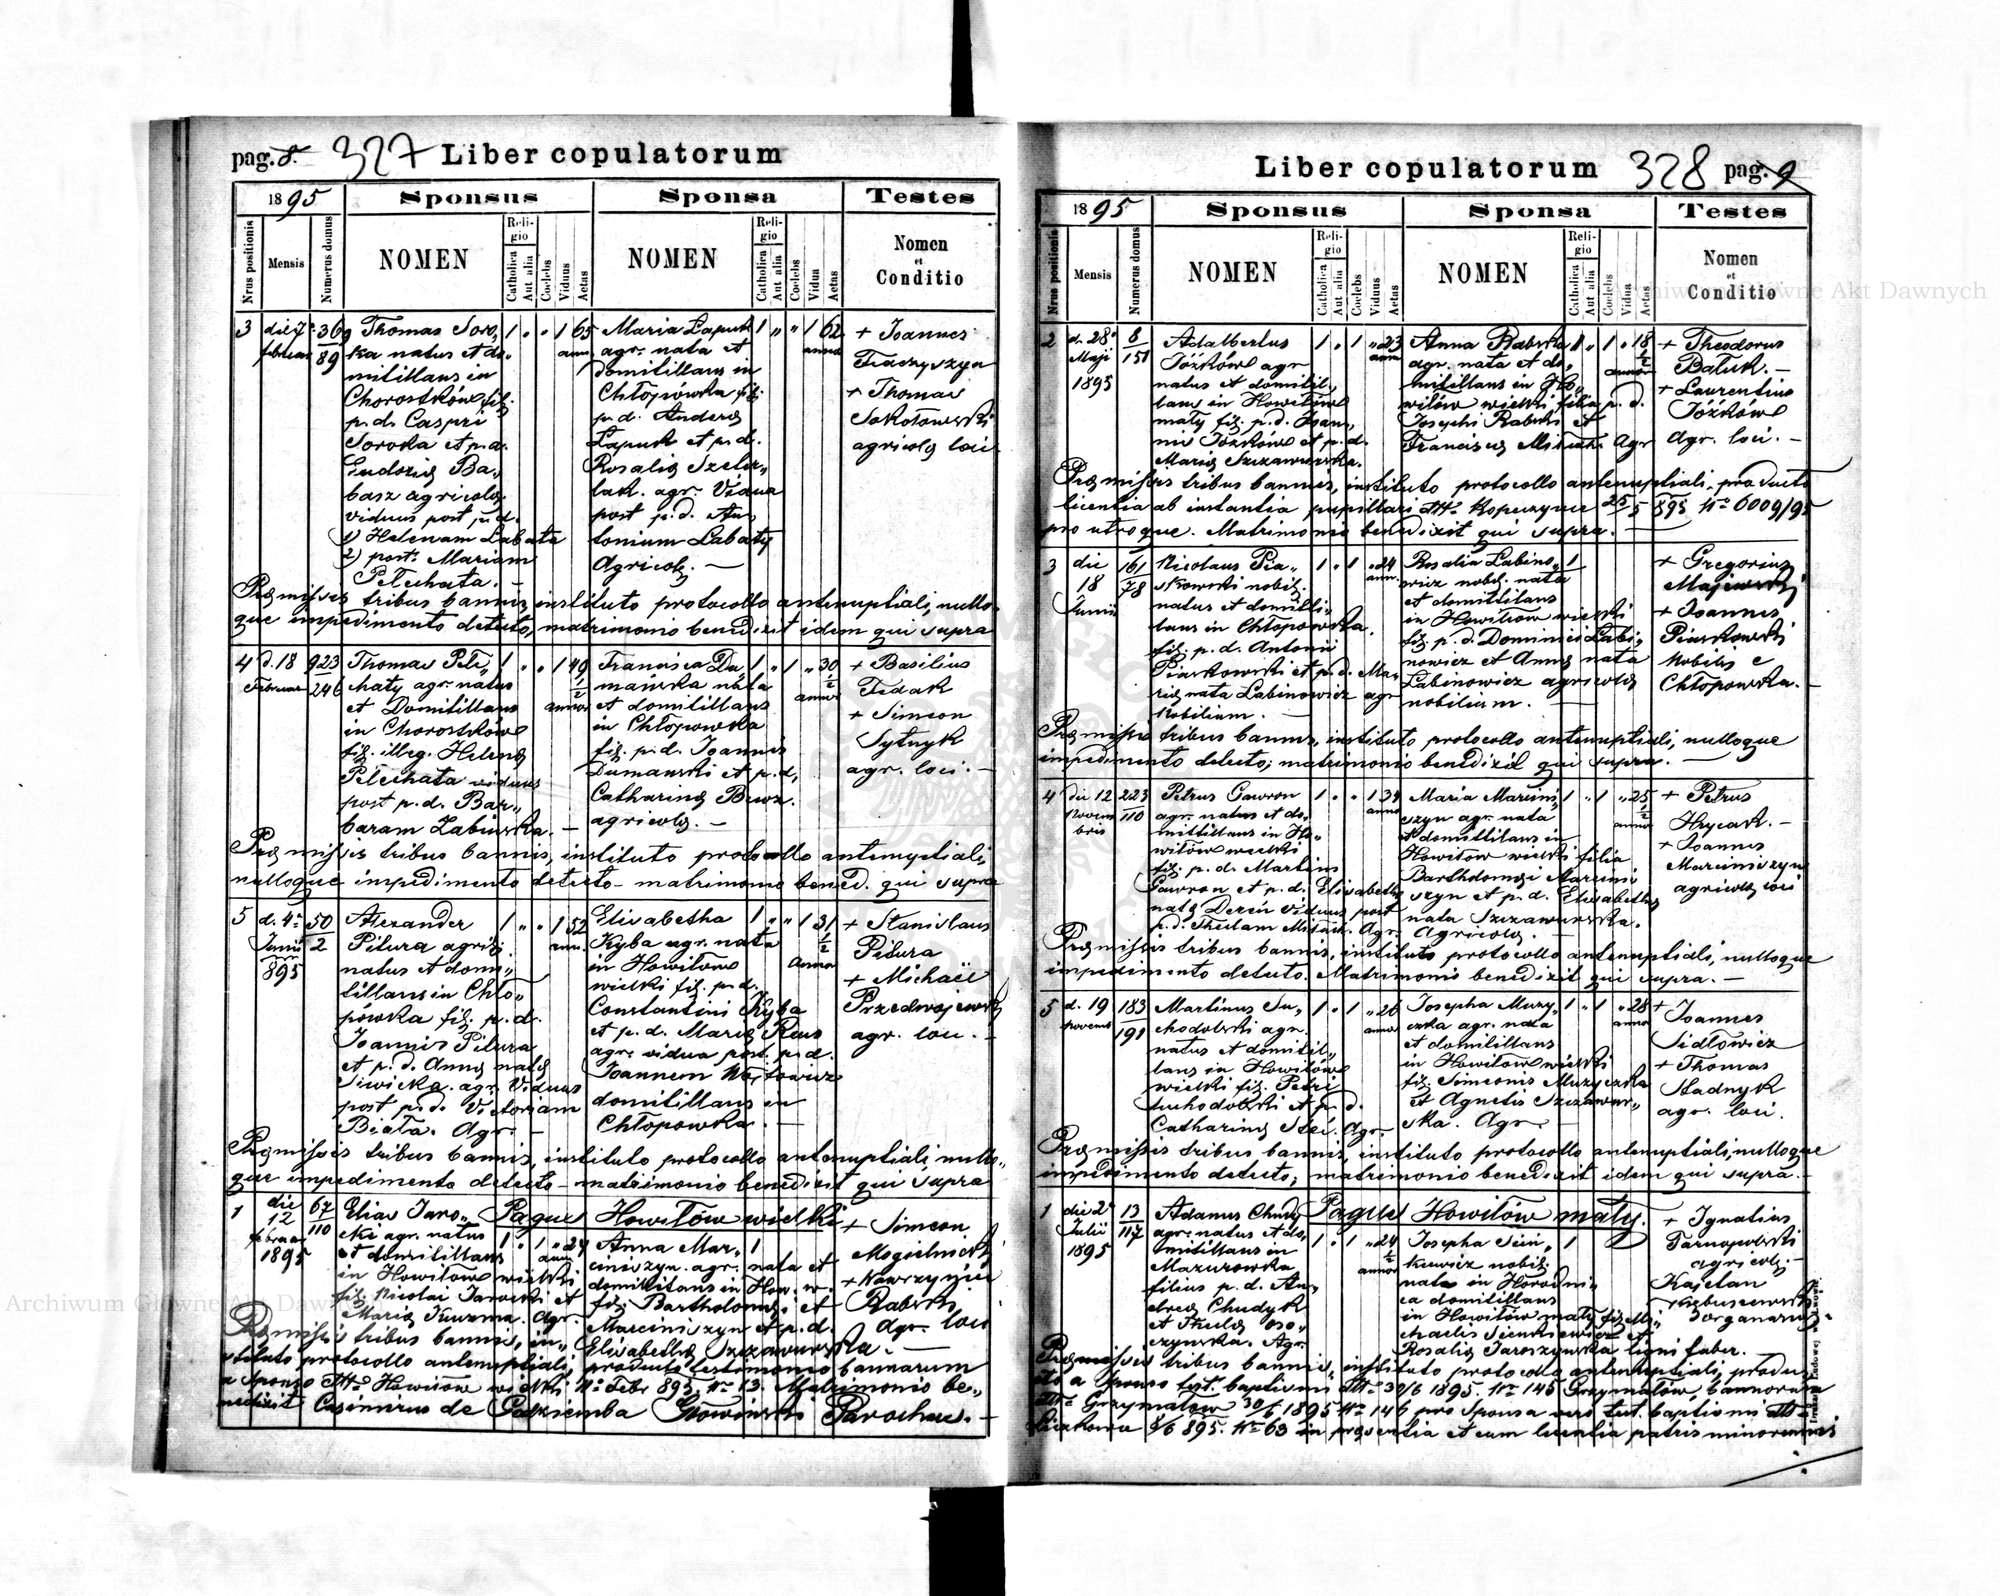 pag. 8. 327 Liber copulatorum
1895 Sponsus Sponsa Testes
Nrus positionis Mensis Numerus domus NOMEN Religio Catholica Aut alia Coelebs Viduus Aetas NOMEN Religio Catholica Aut alia Coelebs Vidua Aetas Nomen et Conditio
3 die 7a februar 369/89
Thomas Soro„
ka natus et do„
mitillans in
Chorostków fil.
p. d. Caspri
Soroka et p. d.
Eudoxię Ba„
basz agricolę
viduus post p. d.
1) Helenam Labata
2) post. Mariam
Pełechata. —
1 „ „ 1 65 ann.
Maria Łapuk
agr. nata et
domitillans in
Chłopówka fil.
p. d. Andreę
Łapuk et p. d.
Rosalię
agr. Vidua
post p. d. An„
tonium Labaty
Agricolę. —
1 „ „ 1 62 annor
+ Joannes
Tkaczyszyn
+ Thomas
Sokołowski
agricolę loci
Pręmissis tribus bannis, instituto protocollo antenuptiali, nullo„
que impedimento detecto, matrimonio benedixit idem qui supra
4 d. 18 Februar 923/246
Thomas Pełe„
chaty agr. natus
et Domitillans
in Chorostków
fil. illeg. Helenę
Pełechata viduus
post p. d. Bar„
baram Zabińska. —
1 „ „ 1 49 1/2 annor
Francisca Du„
mańska nata
et domitillans
in Chłopowka
fil. p. d. Joannis
Dumański et p. d.
Catharinę
agricolę. —
1 „ 1 „ 30 1/2 annor
+ Basilius
Fedak
+ Simeon
Sytnyk
agr. loci. —
Pręmissis tribus bannis, instituto protocollo antenuptiali,
nulloque impedimento detecto — matrimonio bened. qui supra
5 d. 4a Junii 895 50/2
Alexander
Pitura agric.
natus et domi„
tillans in Chło„
pówka fil. p. d.
Joannis Pitura
et p. d. Annę natę
Siwicka. agr. Viduus
post p. d. Victoriam
Biała. Agr. —
1 „ „ 1 52 ann.
Elisabetha
Kyba agr. nata
in Howiłow
wielki fil. p. d.
Constantini Kyba
et p. d. Marię Kaus
agr. vidua post. p. d.
Joannem Wojtowicz
domitillans in
Chłopowka. —
1 „ „ 1 31 1/2 annor
+ Stanislaus
Pitura
+ Michaël
Przedwojewski
agr. loci. —
Pręmissis tribus bannis, instituto protocollo antenuptiali, nullo„
que impedimento detecto — matrimonio benedixit qui supra
Pagus Howiłów wielki
1 die 12 februar 1895 67/110
Elias Jaro„
cki agr. natus
et domitillans
in Howiłow wielki
fil. Nicolai Jarocki et
Marię Kuzma. Agr.
1 „ 1 „ 24 ann.
Anna Mar„
ciniszyn. agr. nata et
domitillans in How. w.
fil. Bartholomęi et
Marciniszyn et p. d.
Elisabethę Szczawurska. —
1
+ Simeon
Mogielnicki
+ Wawrzyniec
Rabski
agr. loci
Pręmissis tribus bannis, in„
stituto protocollo antenuptiali, producto testimonio bannarum
a Sponso dtto Howiłów wielki 11a Febr 895. Nr 13. Matrimonio be„
nedixit Casimirus de Godziemba Głowiński Parochus. —
Liber copulatorum 328 pag. 9
1895 Sponsus Sponsa Testes
Nrus positionis Mensis Numerus domus NOMEN Religio Catholica Aut alia Coelebs Viduus Aetas NOMEN Religio Catholica Aut alia Coelebs Vidua Aetas Nomen et Conditio
2 d. 28a Maji 1895 8/151
Adalbertus
Józków agr
natus et domitil„
lans in Howiłów
mały fil. p. d. Joan„
nis Józków et p. d.
Marię Szczawurska.
1 „ 1 „ 23 ann
Anna Rabska
agr. nata et do„
mitillans in Ho„
wiłów wielki filia p. d.
Josephi Rabski et
Franciscę Misiak. Agr
1 „ 1 „ 18 1/2 annor
+ Theodorus
Batuk. —
+ Laurentius
Józków
agr. loci. —
Pręmissis tribus bannis, instituto protocollo antenuptiali, producto
licentia ab instantia pupillari dtto Kopeczynce 25/5 895 Nr 6009/95
pro utroque. Matrimonio benedixit qui supra. —
3 die 18 Junii 161/78
Nicolaus Pia„
skowski nobil.
natus et domitil„
lans in Chłopowka.
fil. p. d. Antonii
Piaskowski et p. d. Ma„
rię nata Labinowicz agr
Nobilium. —
1 „ 1 „ 24 ann.
Rosalia Labino„
wicz nobil. nata
et domitillans
in Howiłow wielki
fil. p. d. Dominici Labi„
nowicz et Annę nata
Labinowicz agricolę
nobilium. —
1
+ Gregorius
Majewski
+ Joannes
Piaskowski
Nobilis e
Chłopowka. —
Pręmissis tribus bannis, instituto protocollo antenuptiali, nulloque
impedimento detecto; matrimonio benedixit qui supra. —
4 die 12 Novembris 223/110
Petrus Gawron
agr. natus et do„
mitillans in Ho„
wiłów wielki
fil. p. d. Martini
Gawron et p. d. Elisabethę
natę Dereń viduus post
p. d. Theclam Misiak. Agr.
1 „ „ 1 34 annor
Maria Marcini„
szyn agr. nata
et domitillans in
Howiłow wielki filia
Bartholomęi Marcini„
szyn et p. d. Elisabethę
nata Szczawurska.
Agricolę. —
1 „ 1 „ 25 1/2 annor
+ Petrus
Hrycak. —
+ Joannes
Marciniszyn
agricolę loci
Pręmissis tribus bannis, instituto protocollo antenuptiali, nulloque
impedimento detecto. Matrimonio benedixit qui supra. —
5 d. 19 novemb 183/191
Martinus Su„
chodolski agr.
natus et domitil„
lans in Howiłów
wielki fil. Petri
Suchodolski et p. d.
Catharinę Agr.
1 „ 1 „ 26 annor
Josepha Muzy„
czka agr. nata
et domitillans
in Howiłow wielki
fil. Simeonis Muzyczka
et Agnetis Szczawur„
ska. Agr —
1 „ 1 „ 28 annor
+ Joannes
Sidłowicz
+ Thomas
Stadnyk
agr. loci.
Pręmissis tribus bannis, instituto protocollo antenuptiali, nulloque
impedimento detecto; matrimonio benedixit idem qui supra. —
Pagus Howiłów mały.
1 die 2a Julii 1895 13/117
Adamus Chudy
agr. natus et do„
mitillans in
Mazurowka
filius p. d. An„
dreę Chudyk
et Theclę Oso„
czyńska. Agr.
1 „ 1 „ 24 1/2 annor
Josepha Sien„
kiewicz nobil.
nata in Horodni„
ca domitillans
in Howiłów mały fil. Mi„
chaelis Sienkiewicz et
Rosalię Jaroszyńska ligni faber. —
1
+ Ignatius
Tarnopolski
agricola. —
Kajetan
organarius
Pręmissis tribus bannis, instituto protocollo antenuptiali, produc„
to a Sponso test. baptismi dtto 30/6 1895. Nr 145 Grzymałów, bannorum
dtto Grzymałów 30/6 1895 Nr 146 pro Sponsa vero test. baptismi dtto
Liczkowce 8/6 895. Nr 63 in pręsentia et cum licentia patris minorennis
Archiwum Główne Akt Dawnych
Archiwum Główne Akt Dawnych